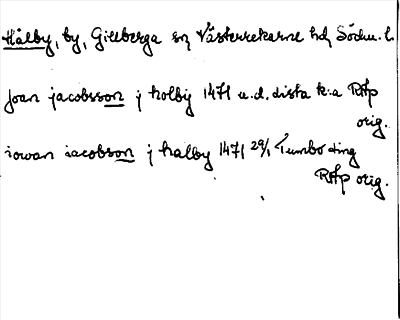 Hålby, by, Gillberga sn Västerrekarne hd, Södm. l.
joan jacobsson j holby 1471 u.d. dista k:a RAp
orig.
iowan iacobson j halby 1471 29/1 Tumbo ding
RAp orig.